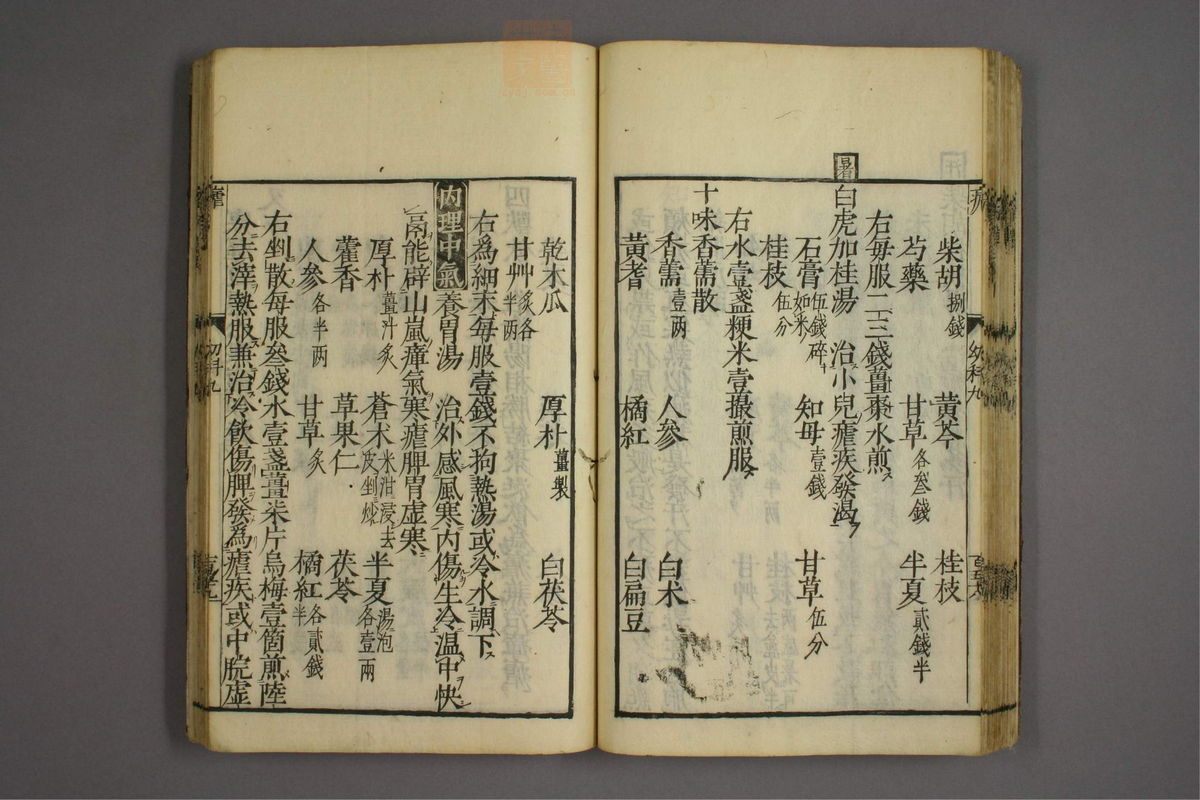 柴胡捌錢 黄芩 桂枝
芍藥 甘草各叁錢 半夏貳錢半
右每服二三錢薑棗水煎
暑
白虎加桂湯 治小兒瘧疾發渴
石膏伍錢碎如米 知母壹錢 甘草伍分
桂枝伍分
右水壹盞粳米壹撮煎服
十味香薷散
香薷壹两 人參 白术
黄耆 橘紅 白扁豆
乾木瓜 厚朴薑製 白茯苓
甘艸炙各半两
右爲細末每服壹錢不拘熱湯或冷水調下
内理中氣
養胃湯 治外感風寒内傷生冷温中快
鬲能辟山嵐瘴氣寒瘧脾胃虚寒
厚朴薑汁炙 蒼术米泔浸去皮剉炒 半夏湯泡各壹兩
藿香 草果仁 茯苓
人參各半两 甘草炙 橘紅各貳錢半
右剉散每服叁錢水壹盞薑柒片烏梅壹箇煎陸
分去滓熱服兼治冷飲傷脾發爲瘧疾或中脘虚
幼科九